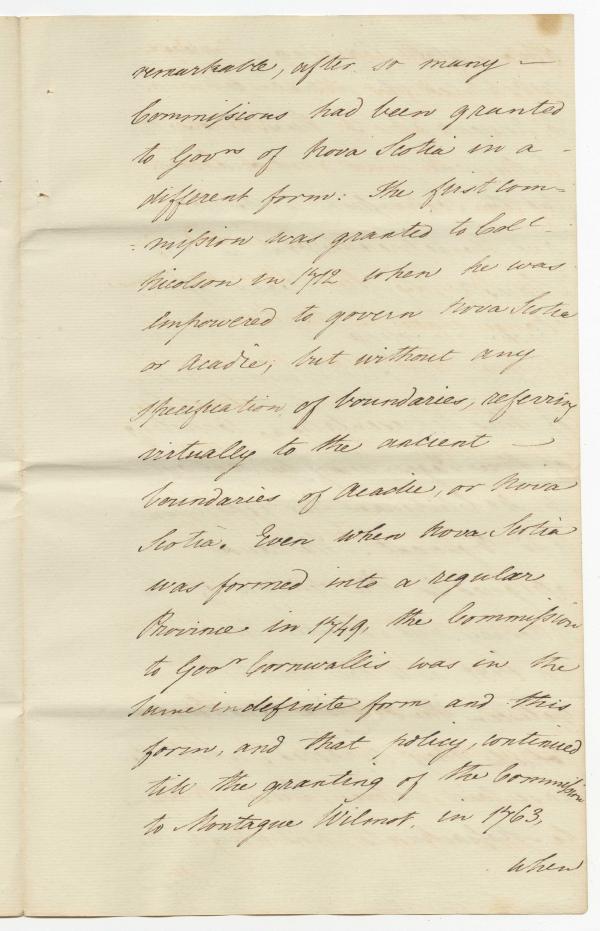 remarkable, after so many —
Commissions had been granted
to Govrs of Nova Scotia in a -
different form: The first Com=
=mission was granted to Coll
Nicolson in 1712 when he was
empowered to govern Nova Scotia
or Acadie, but without any
specification of boundaries, referring
virtually to the ancient —
boundaries of Acadie, or Nova
Scotia. Even when Nova Scotia
was formed into a regular
Province in 1749, the Commission
to Govr Cornwallis was in the
same indefinite form and this
form, and that policy, continued
till the granting of the Commission
to Montague Wilmot, in 1763,
when